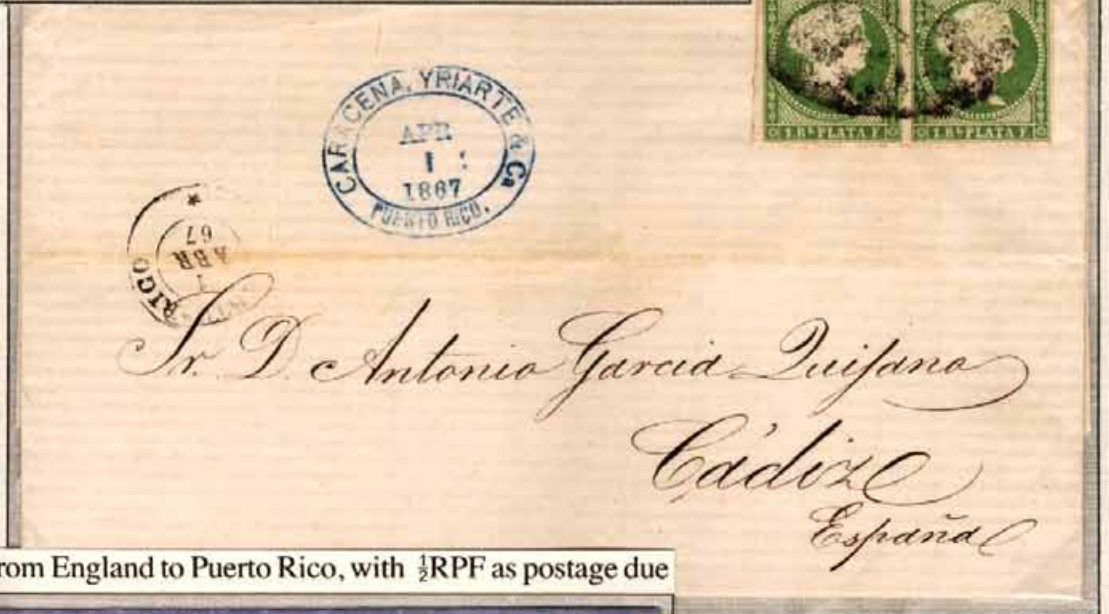 1 Rˢ PLATA F.
1 Rˢ PLATA F.
CARACENA, YRIARTE & Ca
APR
1
1867
PUERTO RICO.
67
ABR
1
RICO
Sr. D. Antonio Garcia Quijano
Cádiz
España
rom England to Puerto Rico, with ½RPF as postage due